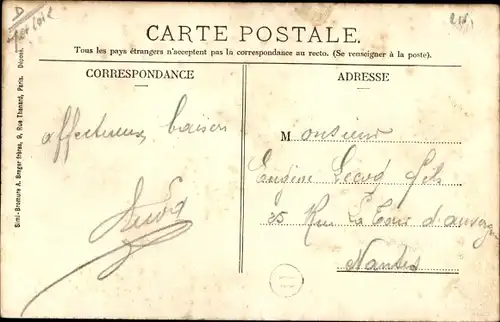 D
CARTE POSTALE.
Tous les pays étrangers n'acceptent pas la correspondance au recto. (Se renseigner à la poste).
CORRESPONDANCE
ADRESSE
Simi-Bromure A. Breger frères, 9, Rue Thenard, Paris. Déposé.
affectueux baisers
Monsieur
Eugène Lecoq fils
25 Rue La Tour d'auvergne
Nantes